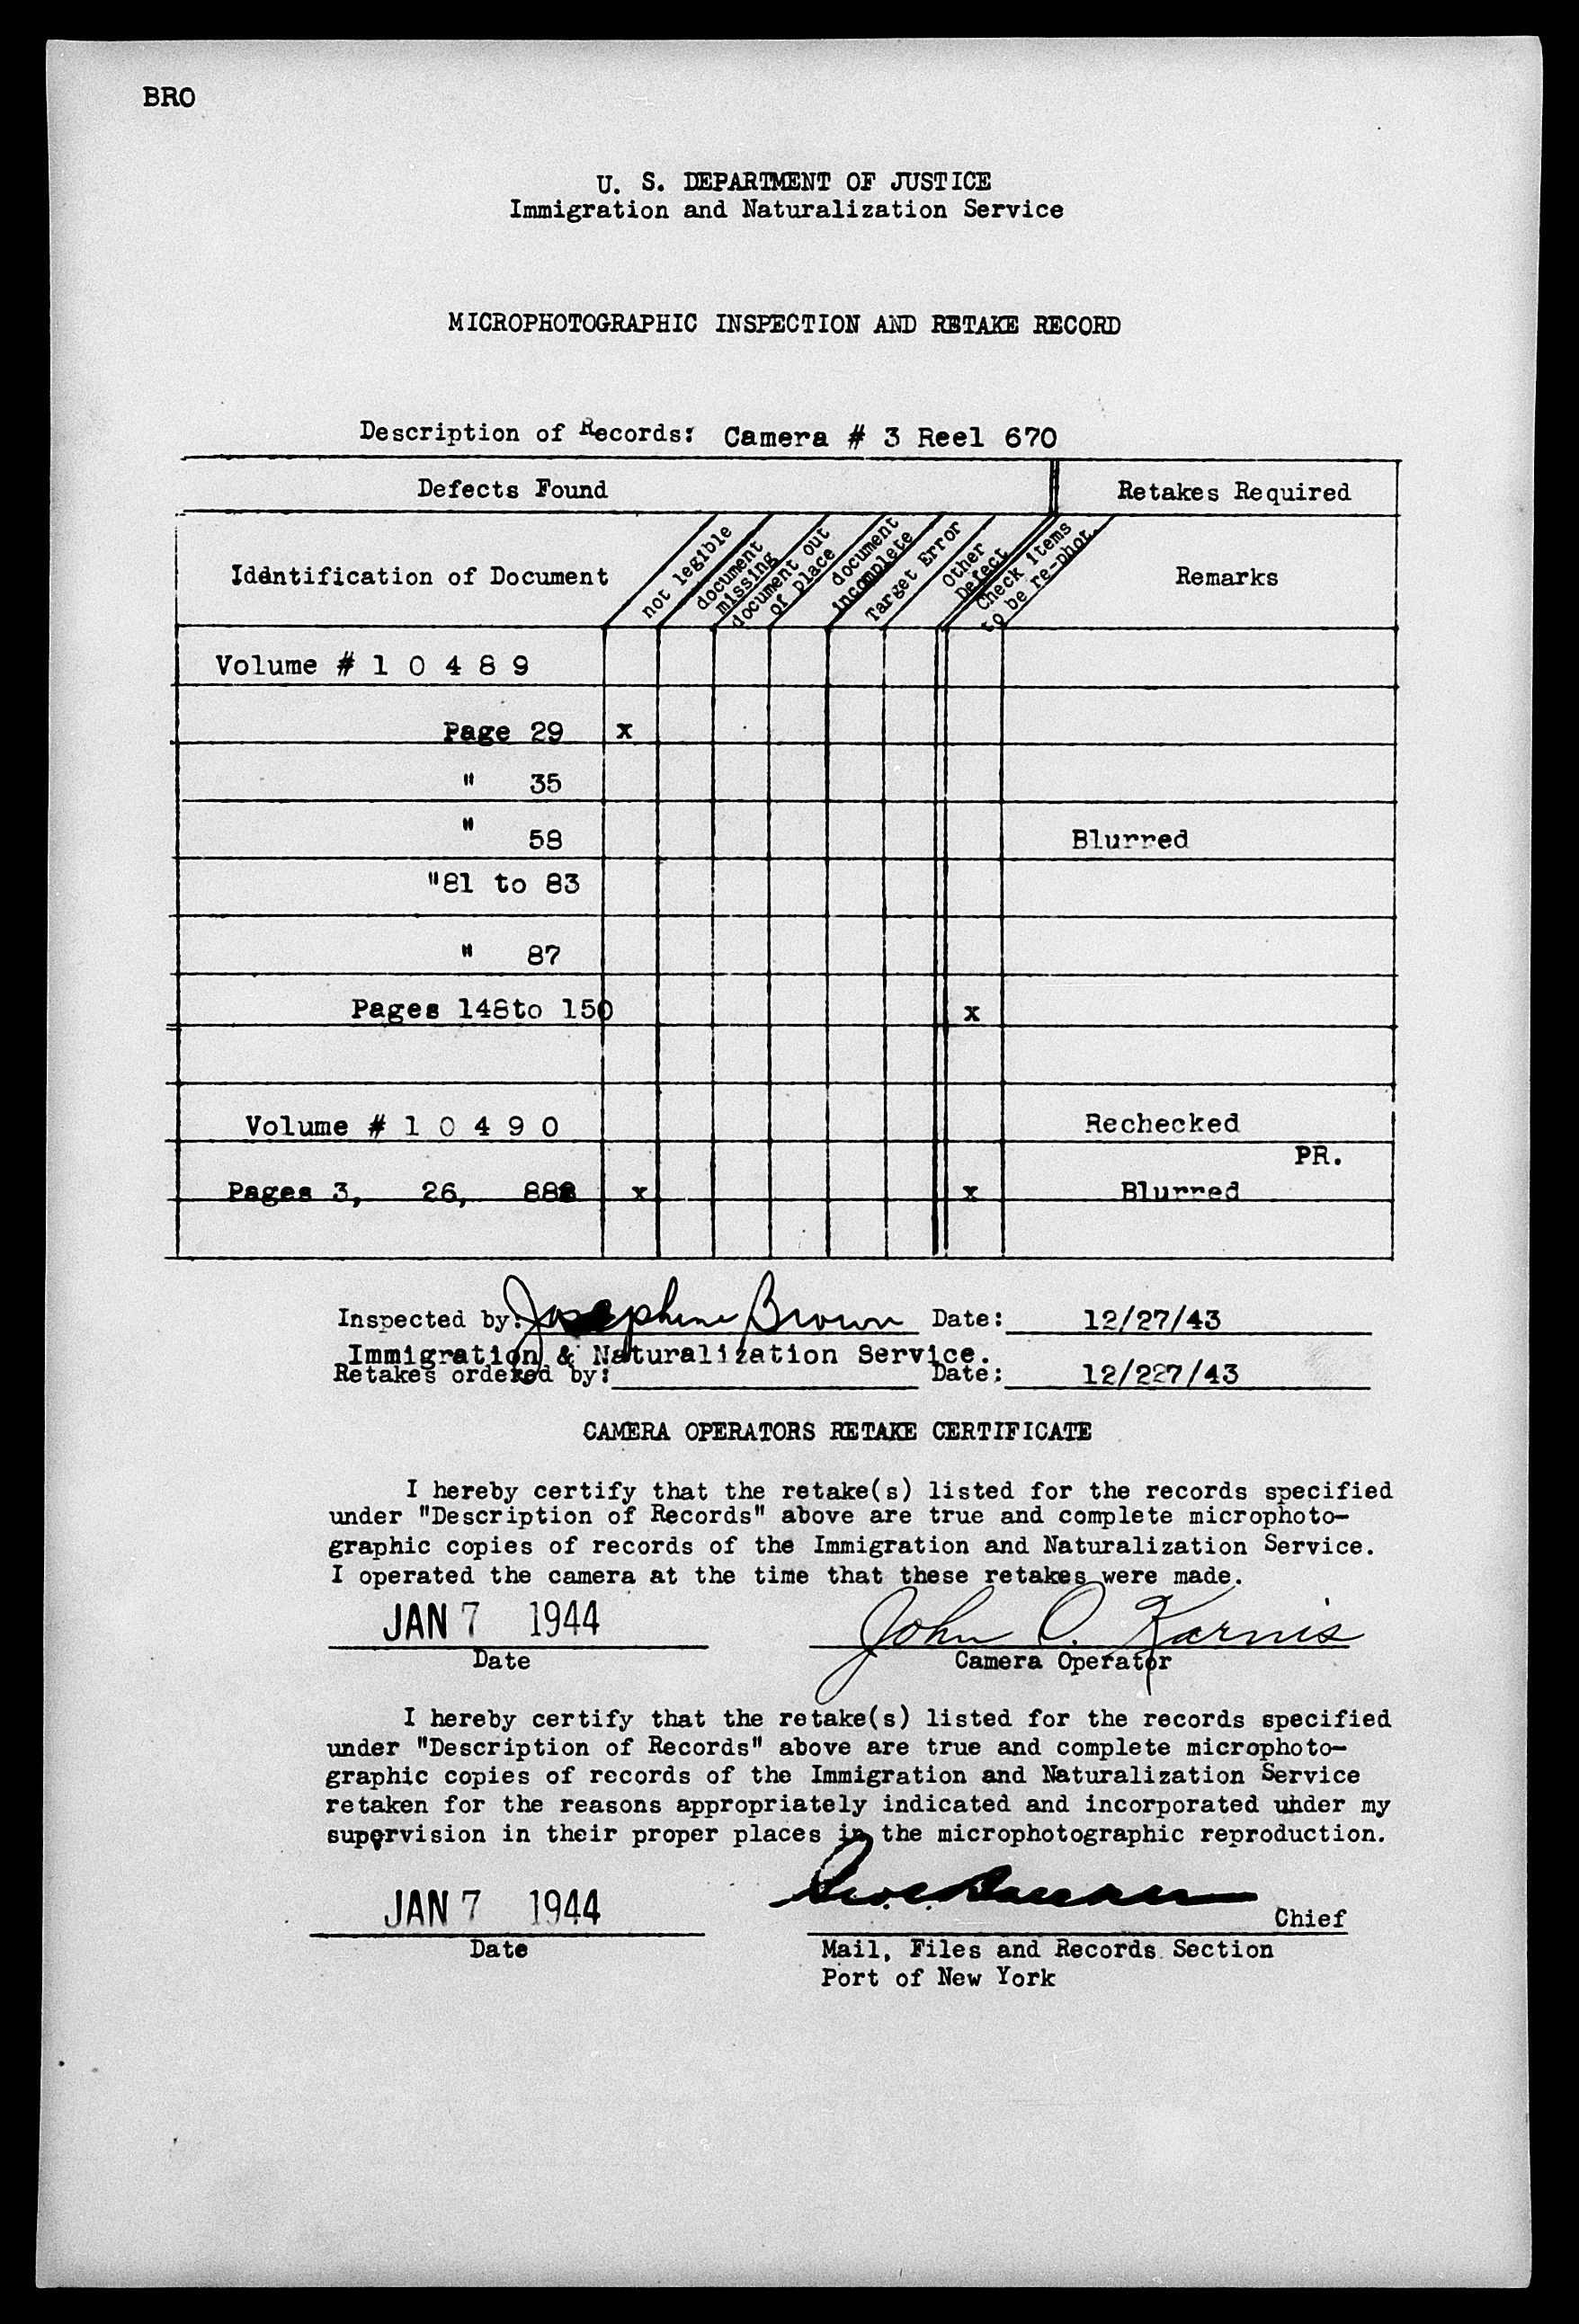 BRO
U. S. DEPARTMENT OF JUSTICE
Immigration and Naturalization Service
MICROPHOTOGRAPHIC INSPECTION AND RETAKE RECORD
Description of Records: Camera # 3 Reel 670
Defects Found Retakes Required
Identification of Document
not legible
document
missing
document out
of place
document
incomplete
Target Error
Other
Defect
Check items
to be re-phot.
Remarks
Volume # 1 0 4 8 9
Page 29 x
" 35
" 58 Blurred
"81 to 83
" 87
Pages 148to 150 x
Volume # 1 0 4 9 0 Rechecked
PR.
Pages 3, 26, x x Blurred
Inspected by: Josephine Brown Date: 12/27/43
Immigration & Naturalization Service.
Retakes ordered by: Date: 12/227/43
CAMERA OPERATORS RETAKE CERTIFICATE
I hereby certify that the retake(s) listed for the records specified
under "Description of Records" above are true and complete microphoto-
graphic copies of records of the Immigration and Naturalization Service.
I operated the camera at the time that these retakes were made.
JAN 7 1944 John O. Karnis
Date Camera Operator
I hereby certify that the retake(s) listed for the records specified
under "Description of Records" above are true and complete microphoto-
graphic copies of records of the Immigration and Naturalization Service
retaken for the reasons appropriately indicated and incorporated under my
supervision in their proper places in the microphotographic reproduction.
JAN 7 1944 Chief
Date Mail, Files and Records Section
Port of New York